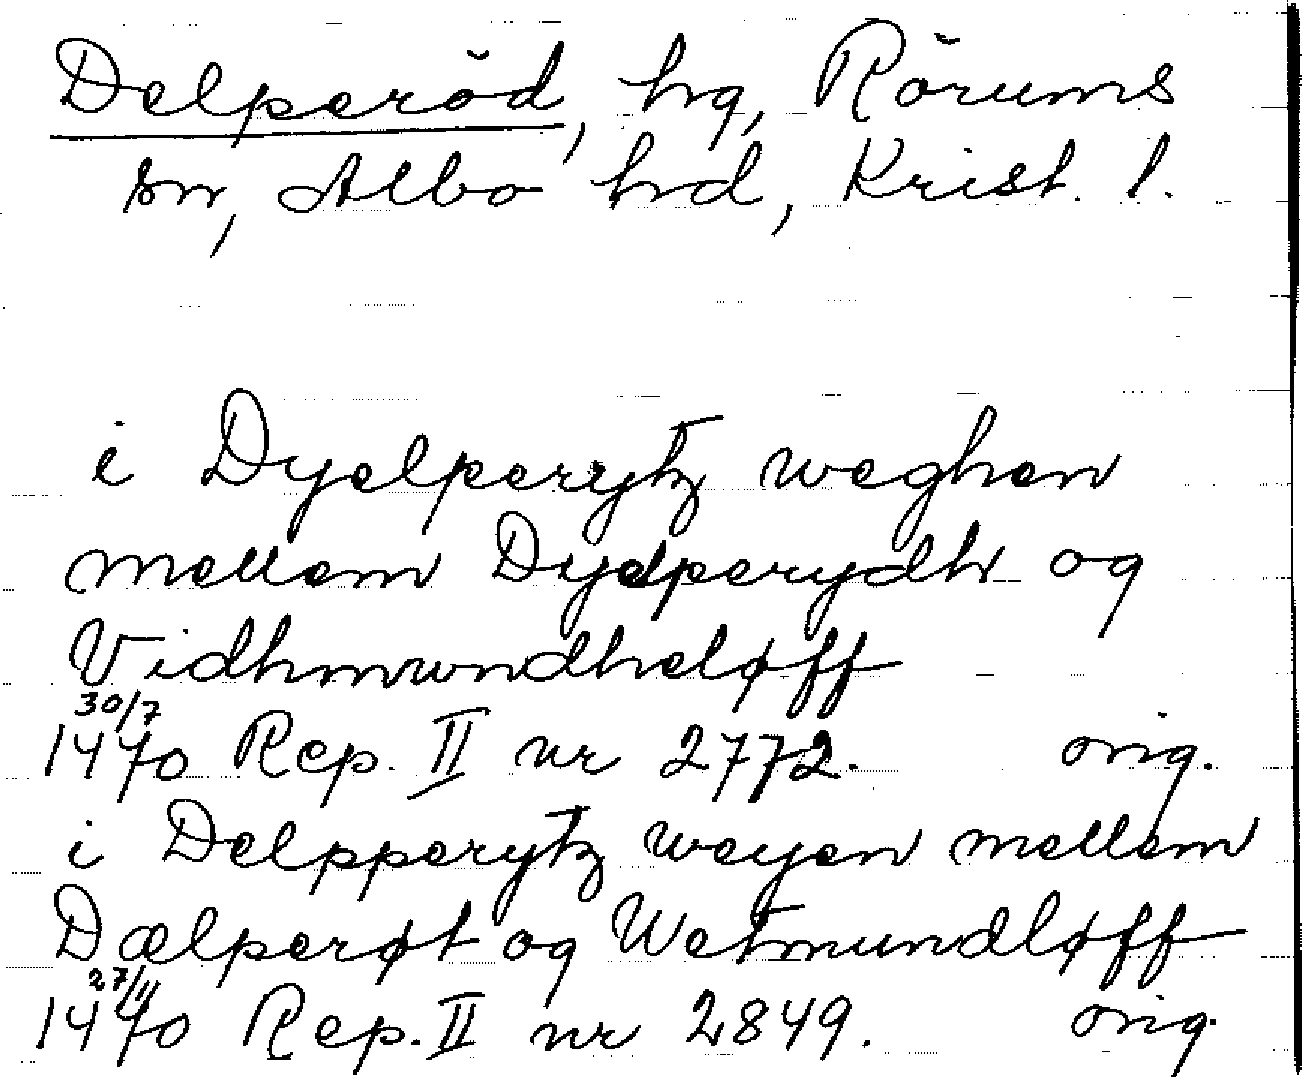 Delperöd, hg, Rörums
sn, Albo hd, Krist. l.
i Dyelperytz weghen
mellem Dyelperydh og
Vidhmwndheløff
30/7
1470 Rep. II nr 2772. orig.
i Delpperytz weyen mellem
Dælperøt og Wetmundløff
27/11
1470 Rep. II nr 2849. orig.